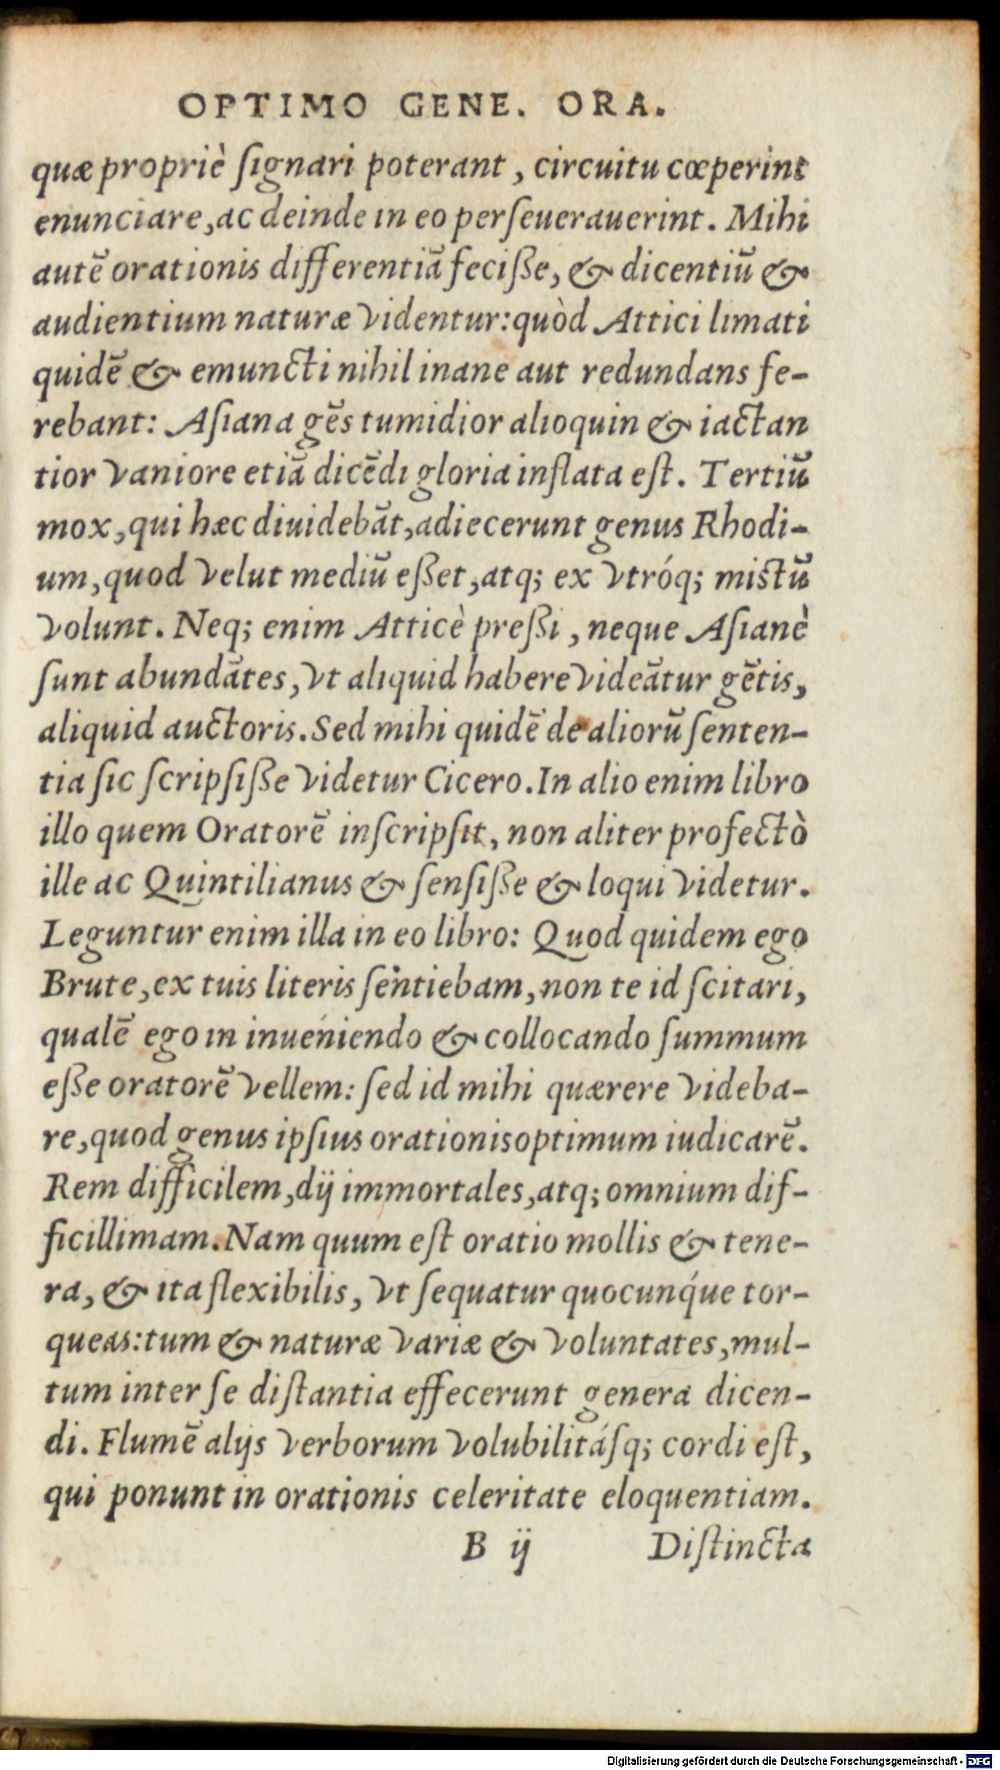 OPTIMO GENE. ORA.
quæ propriè ſignari poterant, circuitu cœperint
enunciare, ac deinde in eo perſeuerauerint. Mihi
autē orationis differentiā feciſſe, & dicentiū &
audientium naturæ videntur: quòd Attici limati
quidē & emuncti nihil inane aut redundans fe-
rebant: Aſiana gēs tumidior alioquin & iactan
tior vaniore etiā dicēdi gloria inflata eſt. Tertiū
mox, qui hæc diuidebāt, adiecerunt genus Rhodi-
um, quod velut mediū eſſet, atq; ex vtróq; mistū
volunt. Neq; enim Atticè preſſi, neque Aſianè
ſunt abundātes, vt aliquid habere videātur gētis,
aliquid auctoris. Sed mihi quidē de aliorū ſenten-
tia ſic ſcripſiſſe videtur Cicero. In alio enim libro
illo quem Oratorē inſcripſit, non aliter profectò
ille ac Quintilianus & ſenſiſſe & loqui videtur.
Leguntur enim illa in eo libro: Quod quidem ego
Brute, ex tuis literis ſentiebam, non te id ſcitari,
qualē ego in inueniendo & collocando ſummum
eſſe oratorē vellem: ſed id mihi quærere videba-
re, quod genus ipſius orationis optimum iudicarē.
Rem difficilem, dij immortales, atq; omnium dif-
ficillimam. Nam quum eſt oratio mollis & tene-
ra, & ita flexibilis, vt ſequatur quocunq́ue tor-
queas: tum & naturæ variæ & voluntates, mul-
tum inter ſe diſtantia effecerunt genera dicen-
di. Flumē alijs verborum volubilitáſq; cordi eſt,
qui ponunt in orationis celeritate eloquentiam.
B ij Diſtincta
Digitalisierung gefördert durch die Deutsche Forschungsgemeinschaft - DFG